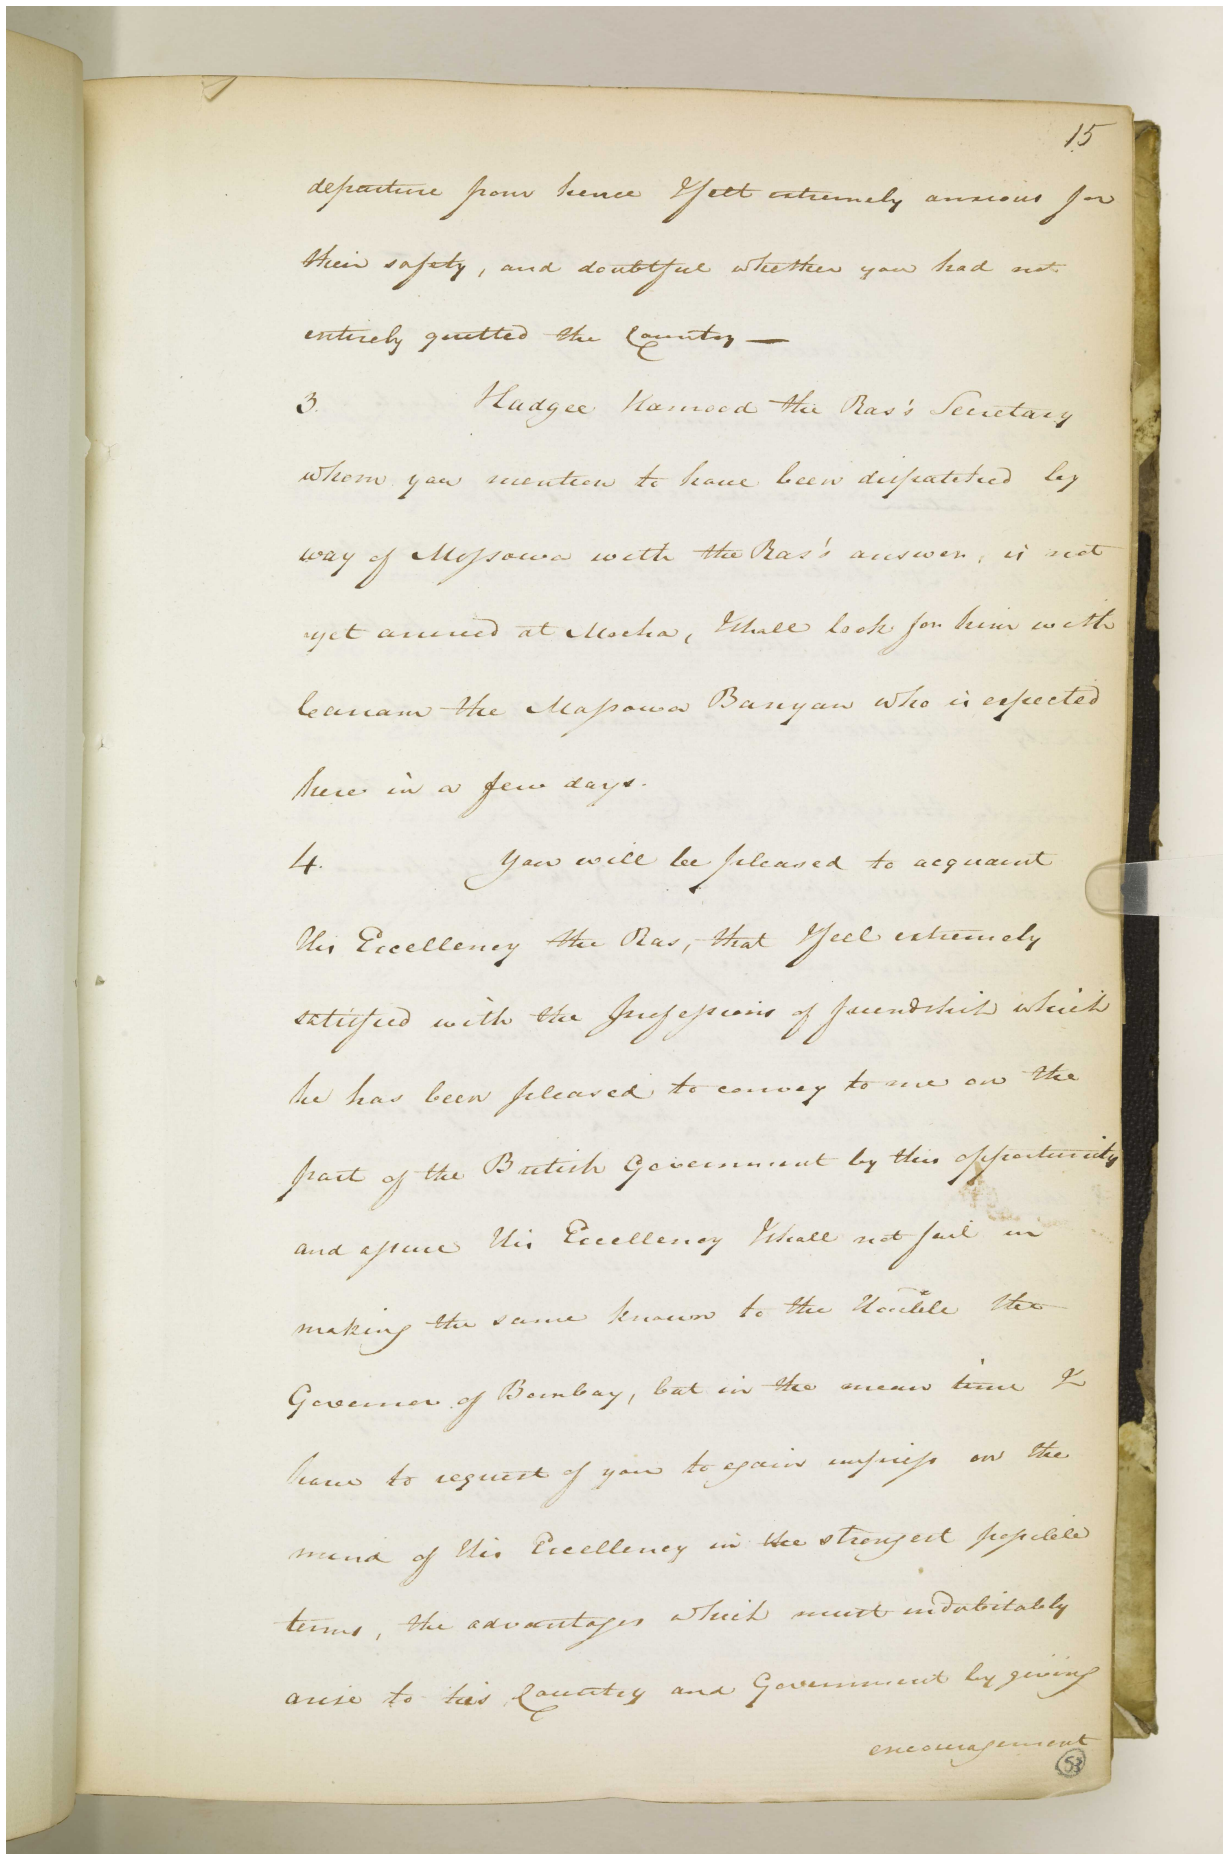 15
departure from hence I felt extremely anxious for
their safety, and doubtful whether you had not
entirely quitted the Country —
3. Hadgee Hamood the Ras's Secretary
whom you mention to have been dispatched by
way of Mossowa with the Ras's answer, is not
yet arrived at Mocha, I shall look for him with
the Massowa Banyan who is expected
here in a few days.
4. You will be pleased to acquaint
His Excellency the Ras, that I feel extremely
satisfied with the professions of friendship which
he has been pleased to convey to me on the
part of the British Government by this opportunity
and assure His Excellency I shall not fail in
making the same known to the Honble the
Governor of Bombay, but in the mean time I
have to request of you to again impress on the
mind of His Excellency in the strongest possible
terms, the advantages which must indubitably
arise to his Country and Government by giving
encouragement
53